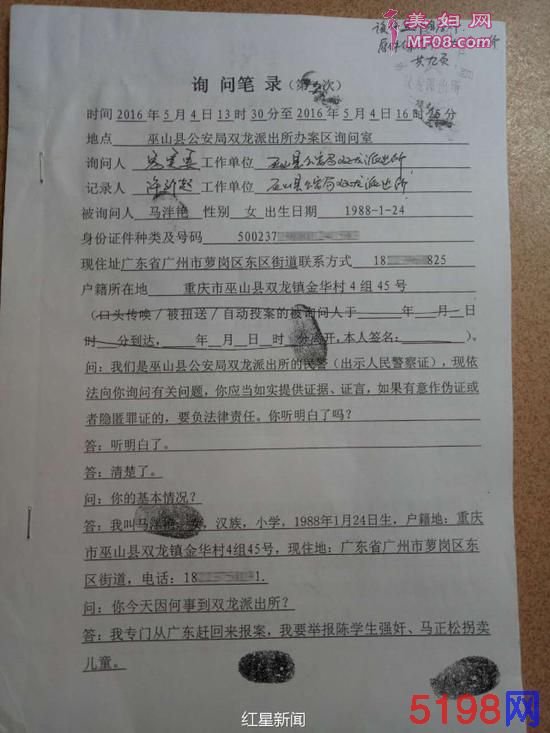 美妇网
MF08.com
共九页
询问笔录(第 次)
时间 2016 年 5 月 4 日 13 时 30 分至 2016 年 5 月 4 日 16 时 分
地点 巫山县公安局双龙派出所办案区询问室
询问人 工作单位 巫山县公安局双龙派出所
记录人 工作单位 巫山县公安局双龙派出所
被询问人 马泮艳 性别 女 出生日期 1988-1-24
身份证件种类及号码 500237
现住址广东省广州市萝岗区东区街道联系方式 18 825
户籍所在地 重庆市巫山县双龙镇金华村 4 组 45 号
(口头传唤/被扭送/自动投案的被询问人于 年 月 日
时 分到达, 年 月 日 时 分离开,本人签名: )。
问:我们是巫山县公安局双龙派出所的民警(出示人民警察证),现依
法向你询问有关问题,你应当如实提供证据、证言,如果有意作伪证或
者隐匿罪证的,要负法律责任。你听明白了吗?
答:听明白了。
答:清楚了。
问:你的基本情况?
答:我叫马泮艳,女,汉族,小学,1988年1月24日生,户籍地:重庆
市巫山县双龙镇金华村4组45号,现住地:广东省广州市萝岗区东
区街道,电话:18 1.
问:你今天因何事到双龙派出所?
答:我专门从广东赶回来报案,我要举报陈学生强奸、马正松拐卖
儿童。
红星新闻
5198网